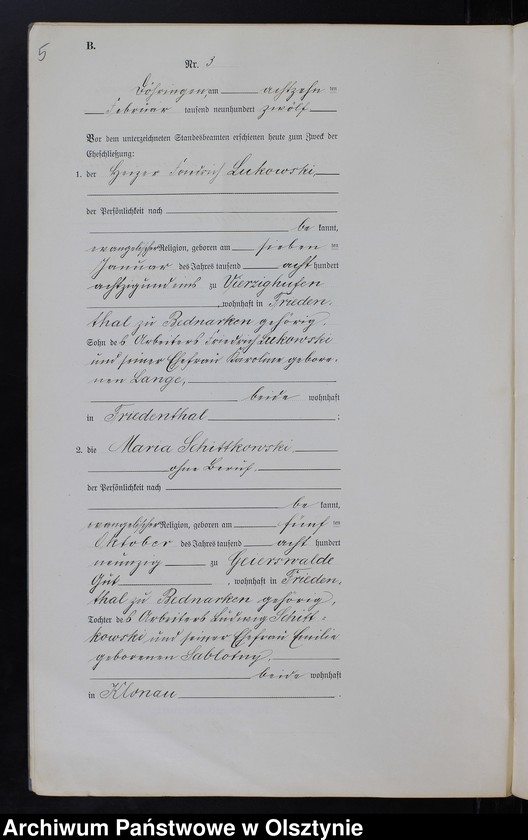 5
B.
Nr. 3
Döhringen, am achtzehn ten
Februar tausend neunhundert zwölf
Vor dem unterzeichneten Standesbeamten erschienen heute zum Zweck der
Eheschließung:
1. der Heizer Friedrich Lukowski,
der Persönlichkeit nach
be kannt,
evangelischer Religion, geboren am sieben ten
Januar des Jahres tausend acht hundert
achtzigundeins zu Vierzighufen
, wohnhaft in Frieden-
thal zu Bednarken gehörig.
Sohn des Arbeiters Friedrich Lukowski
und seiner Ehefrau Karoline gebore-
nen Lange,
beide wohnhaft
in Friedenthal ;
2. die Maria Schittkowski,
ohne Beruf,
der Persönlichkeit nach
be kannt,
evangelischer Religion, geboren am fünf ten
Oktober des Jahres tausend acht hundert
neunzig zu Geierswalde
Gut , wohnhaft in Frieden-
thal zu Bednarken gehörig,
Tochter des Arbeiters Ludwig Schitt-
kowski und seiner Ehefrau Emilie
geborenen Sablotny,
beide wohnhaft
in Klonau .
Archiwum Państwowe w Olsztynie